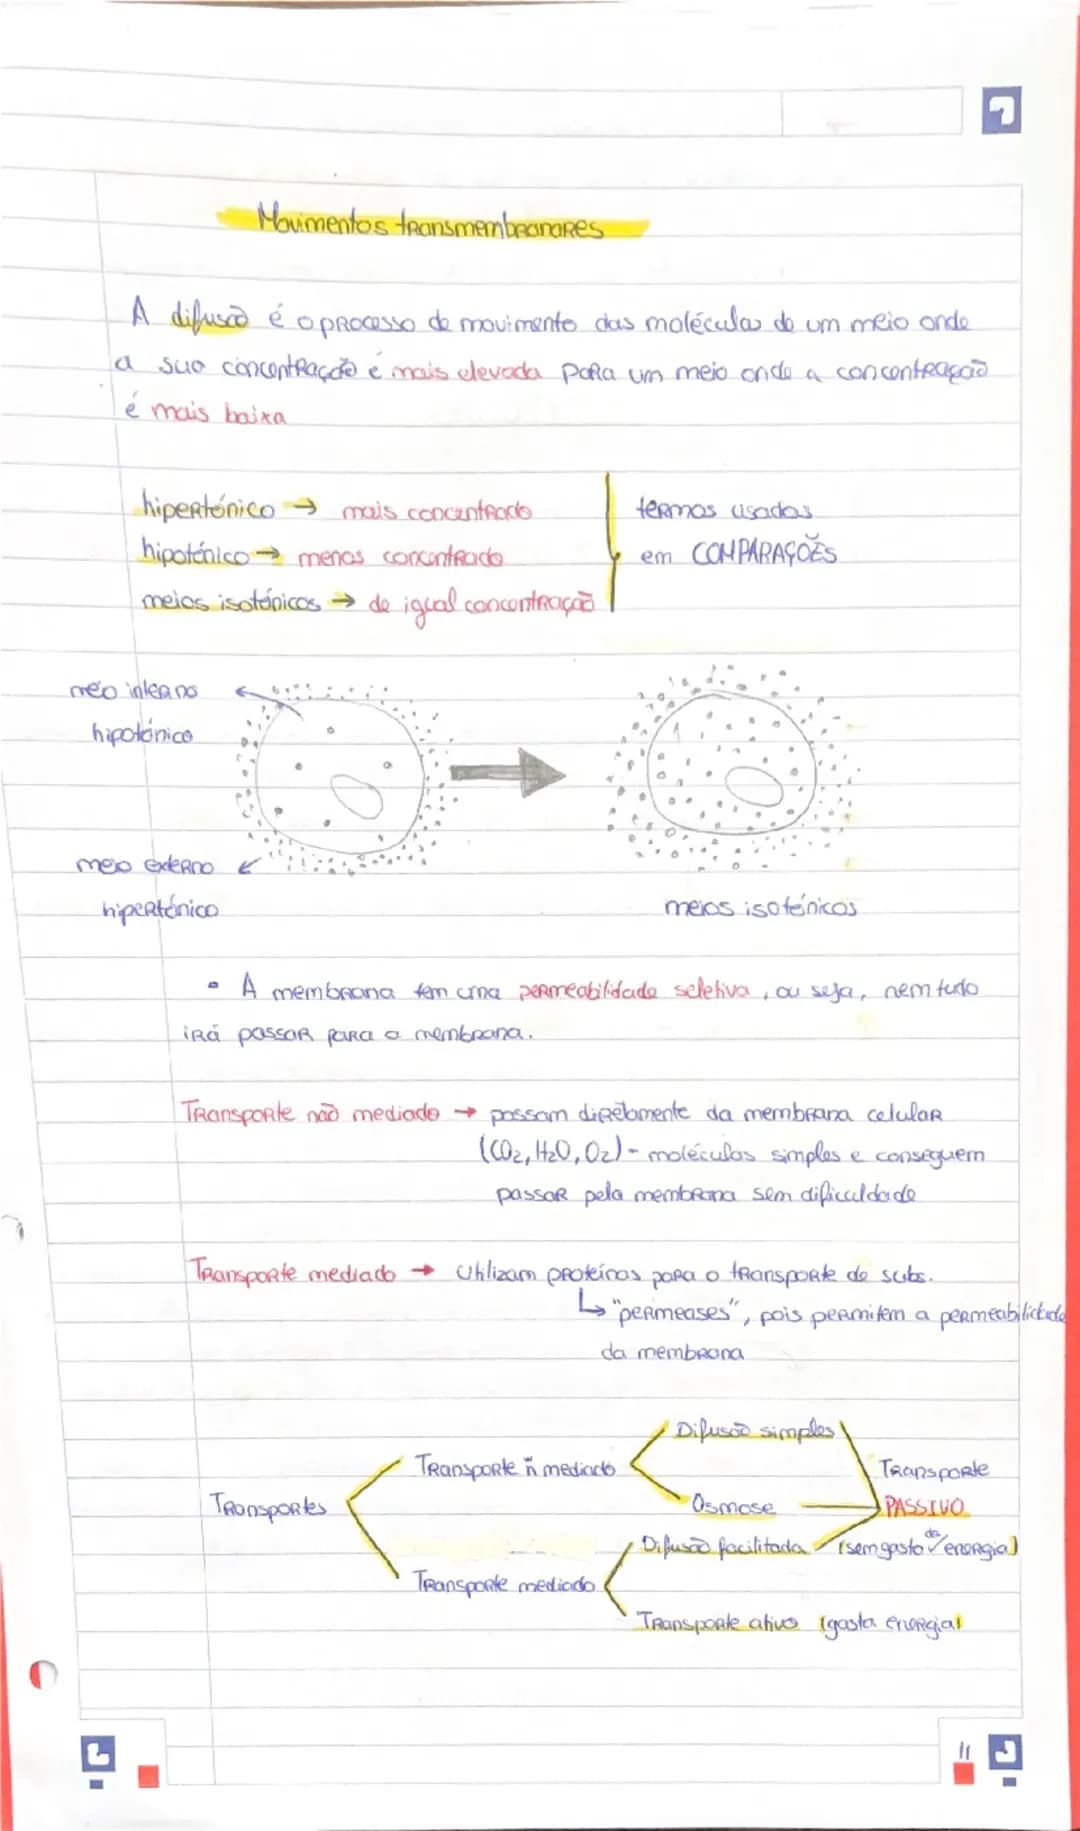 Movimentos transmembranares
A difusão é o processo de movimento das moléculas de um meio onde
a sua concentração é mais elevada para um meio onde a concentração
é mais baixa
hipertónico → mais concentrado
hipotónico → menos concentrado
meios isotónicos → de igual concentração
termos usados
em COMPARAÇÕES
meio interno
hipotónico
meio externo
hipertónico
meios isotónicos
• A membrana tem uma permeabilidade seletiva, ou seja, nem tudo
irá passar para a membrana.
Transporte não mediado → passam diretamente da membrana celular
(CO2, H2O, O2) - moléculas simples e conseguem
passar pela membrana sem dificuldade
Transporte mediado → Utilizam proteínas para o transporte de subs.
↳ "permeases", pois permitem a permeabilidade
da membrana
Transportes
Transporte ñ mediado
Difusão simples
Osmose
Transporte
PASSIVO
(sem gasto de energia)
Transporte mediado
Difusão facilitada
Transporte ativo (gasta energia)